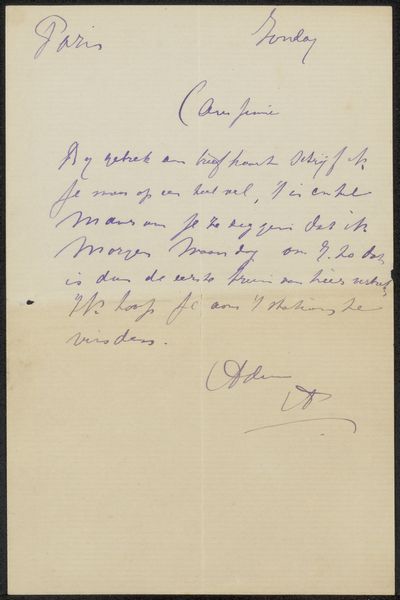 Paris Zondag
Caro mio
By gebrek aan briefkaart schrijf ik
je maar op een heel vel, 't is enkel
maar om je te zeggen dat ik
morgen Maandag om 7.20 dat
is dus de eerste trein van hier vertrek
Ik hoop je aan 't station te
vinden.
Adieu
A